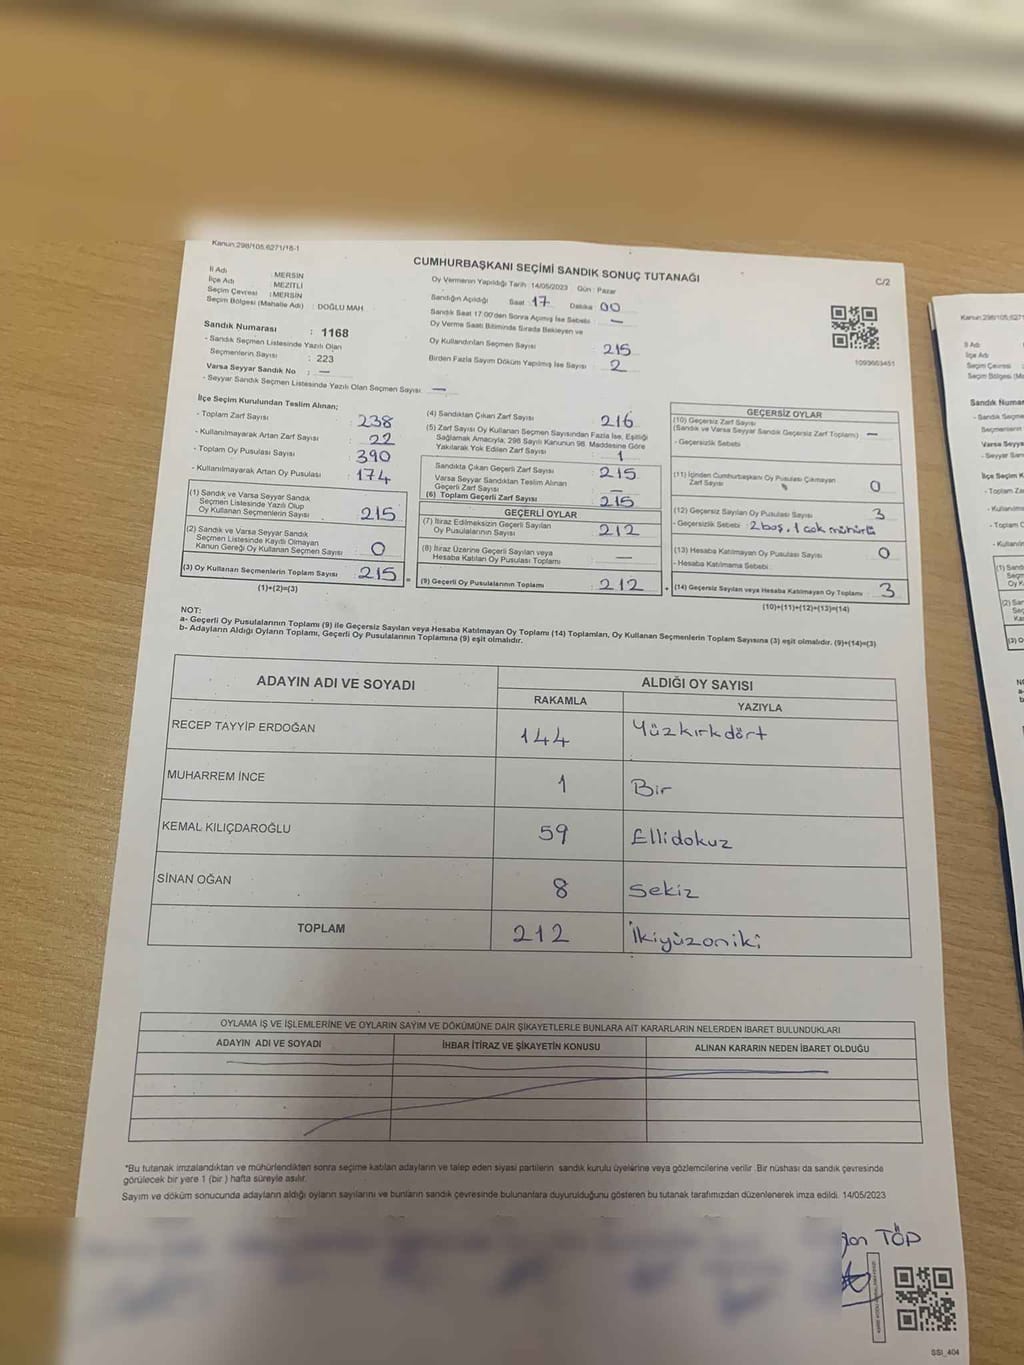 Kanun:298/105;6271/18-1
CUMHURBAŞKANI SEÇİMİ SANDIK SONUÇ TUTANAĞI
C/2
İl Adı : MERSİN
İlçe Adı : MEZİTLİ
Seçim Çevresi : MERSİN
Seçim Bölgesi (Mahalle Adı) : DOĞLU MAH
Sandık Numarası : 1168
- Sandık Seçmen Listesinde Yazılı Olan
Seçmenlerin Sayısı : 223
Varsa Seyyar Sandık No : —
- Seyyar Sandık Seçmen Listesinde Yazılı Olan Seçmen Sayısı : —
Oy Vermenin Yapıldığı Tarih : 14/05/2023 Gün : Pazar
Sandığın Açıldığı Saat : 17 Dakika : 00
Sandık Saat 17:00'den Sonra Açılmış İse Sebebi : —
Oy Verme Saati Bitiminde Sırada Bekleyen ve
Oy Kullandırılan Seçmen Sayısı : 215
Birden Fazla Sayım Döküm Yapılmış İse Sayısı : 2
1093663451
İlçe Seçim Kurulundan Teslim Alınan;
- Toplam Zarf Sayısı : 238
- Kullanılmayarak Artan Zarf Sayısı : 22
- Toplam Oy Pusulası Sayısı : 390
- Kullanılmayarak Artan Oy Pusulası : 174
(1) Sandık ve Varsa Seyyar Sandık
Seçmen Listesinde Yazılı Olup
Oy Kullanan Seçmenlerin Sayısı : 215
(2) Sandık ve Varsa Seyyar Sandık
Seçmen Listesinde Kayıtlı Olmayan
Kanun Gereği Oy Kullanan Seçmen Sayısı : 0
(3) Oy Kullanan Seçmenlerin Toplam Sayısı : 215
(1)+(2)=(3)
(4) Sandıktan Çıkan Zarf Sayısı : 216
(5) Zarf Sayısı Oy Kullanan Seçmen Sayısından Fazla İse, Eşitliği
Sağlamak Amacıyla; 298 Sayılı Kanunun 98. Maddesine Göre
Yakılarak Yok Edilen Zarf Sayısı : 1
Sandıkta Çıkan Geçerli Zarf Sayısı : 215
Varsa Seyyar Sandıktan Teslim Alınan
Geçerli Zarf Sayısı : —
(6) Toplam Geçerli Zarf Sayısı : 215
GEÇERLİ OYLAR
(7) İtiraz Edilmeksizin Geçerli Sayılan
Oy Pusulalarının Sayısı : 212
(8) İtiraz Üzerine Geçerli Sayılan veya
Hesaba Katılan Oy Pusulası Toplamı : —
= (9) Geçerli Oy Pusulalarının Toplamı : 212
GEÇERSİZ OYLAR
(10) Geçersiz Zarf Sayısı
(Sandık ve Varsa Seyyar Sandık Geçersiz Zarf Toplamı) : —
- Geçersizlik Sebebi :
(11) İçinden Cumhurbaşkanı Oy Pusulası Çıkmayan
Zarf Sayısı : 0
(12) Geçersiz Sayılan Oy Pusulası Sayısı : 3
- Geçersizlik Sebebi : 2 boş, 1 çok mühürlü
(13) Hesaba Katılmayan Oy Pusulası Sayısı : 0
- Hesaba Katılmama Sebebi :
+ (14) Geçersiz Sayılan veya Hesaba Katılmayan Oy Toplamı : 3
(10)+(11)+(12)+(13)=(14)
NOT:
a- Geçerli Oy Pusulalarının Toplamı (9) ile Geçersiz Sayılan veya Hesaba Katılmayan Oy Toplamı (14) Toplamları, Oy Kullanan Seçmenlerin Toplam Sayısına (3) eşit olmalıdır. (9)+(14)=(3)
b- Adayların Aldığı Oyların Toplamı, Geçerli Oy Pusulalarının Toplamına (9) eşit olmalıdır.
ADAYIN ADI VE SOYADI ALDIĞI OY SAYISI
RAKAMLA YAZIYLA
RECEP TAYYİP ERDOĞAN 144 Yüzkırkdört
MUHARREM İNCE 1 Bir
KEMAL KILIÇDAROĞLU 59 Ellidokuz
SİNAN OĞAN 8 Sekiz
TOPLAM 212 İkiyüzoniki
OYLAMA İŞ VE İŞLEMLERİNE VE OYLARIN SAYIM VE DÖKÜMÜNE DAİR ŞİKAYETLERLE BUNLARA AİT KARARLARIN NELERDEN İBARET BULUNDUKLARI
ADAYIN ADI VE SOYADI İHBAR İTİRAZ VE ŞİKAYETİN KONUSU ALINAN KARARIN NEDEN İBARET OLDUĞU
*Bu tutanak imzalandıktan ve mühürlendikten sonra seçime katılan adayların ve talep eden siyasi partilerin sandık kurulu üyelerine veya gözlemcilerine verilir. Bir nüshası da sandık çevresinde
görülecek bir yere 1 (bir) hafta süreyle asılır.
Sayım ve döküm sonucunda adayların aldığı oyların sayılarını ve bunların sandık çevresinde bulunanlara duyurulduğunu gösteren bu tutanak tarafımızdan düzenlenerek imza edildi. 14/05/2023
TÖP
SSI_404
Kanun:298/105;6271
İl Adı
İlçe Adı
Seçim Çevresi
Seçim Bölgesi (M
Sandık Numar
- Sandık Seçme
Seçmenlerin
Varsa Seyya
- Seyyar San
İlçe Seçim K
- Toplam Z
- Kullanılm
- Toplam O
- Kullanılm
(1) Sandı
Seçm
Oy K
(2) San
Seç
Ka
(3) O
NO
a-
b